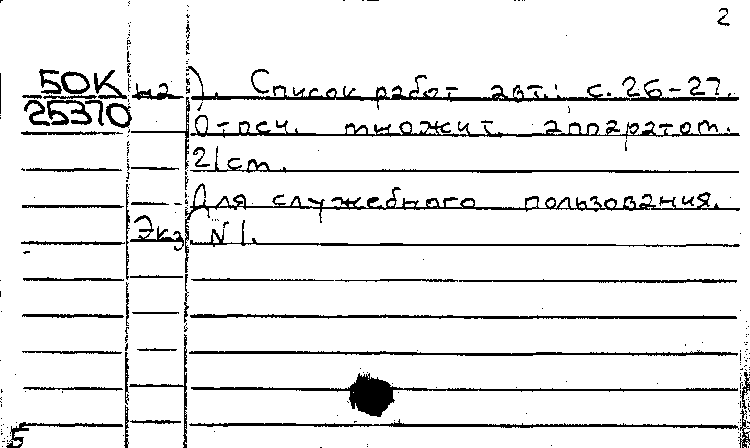 2
БОК на). Список работ авт.: с. 26-27.
25370 Отпеч. множит. аппаратом.
21 см.
Для служебного пользования.
Экз. N 1.
5